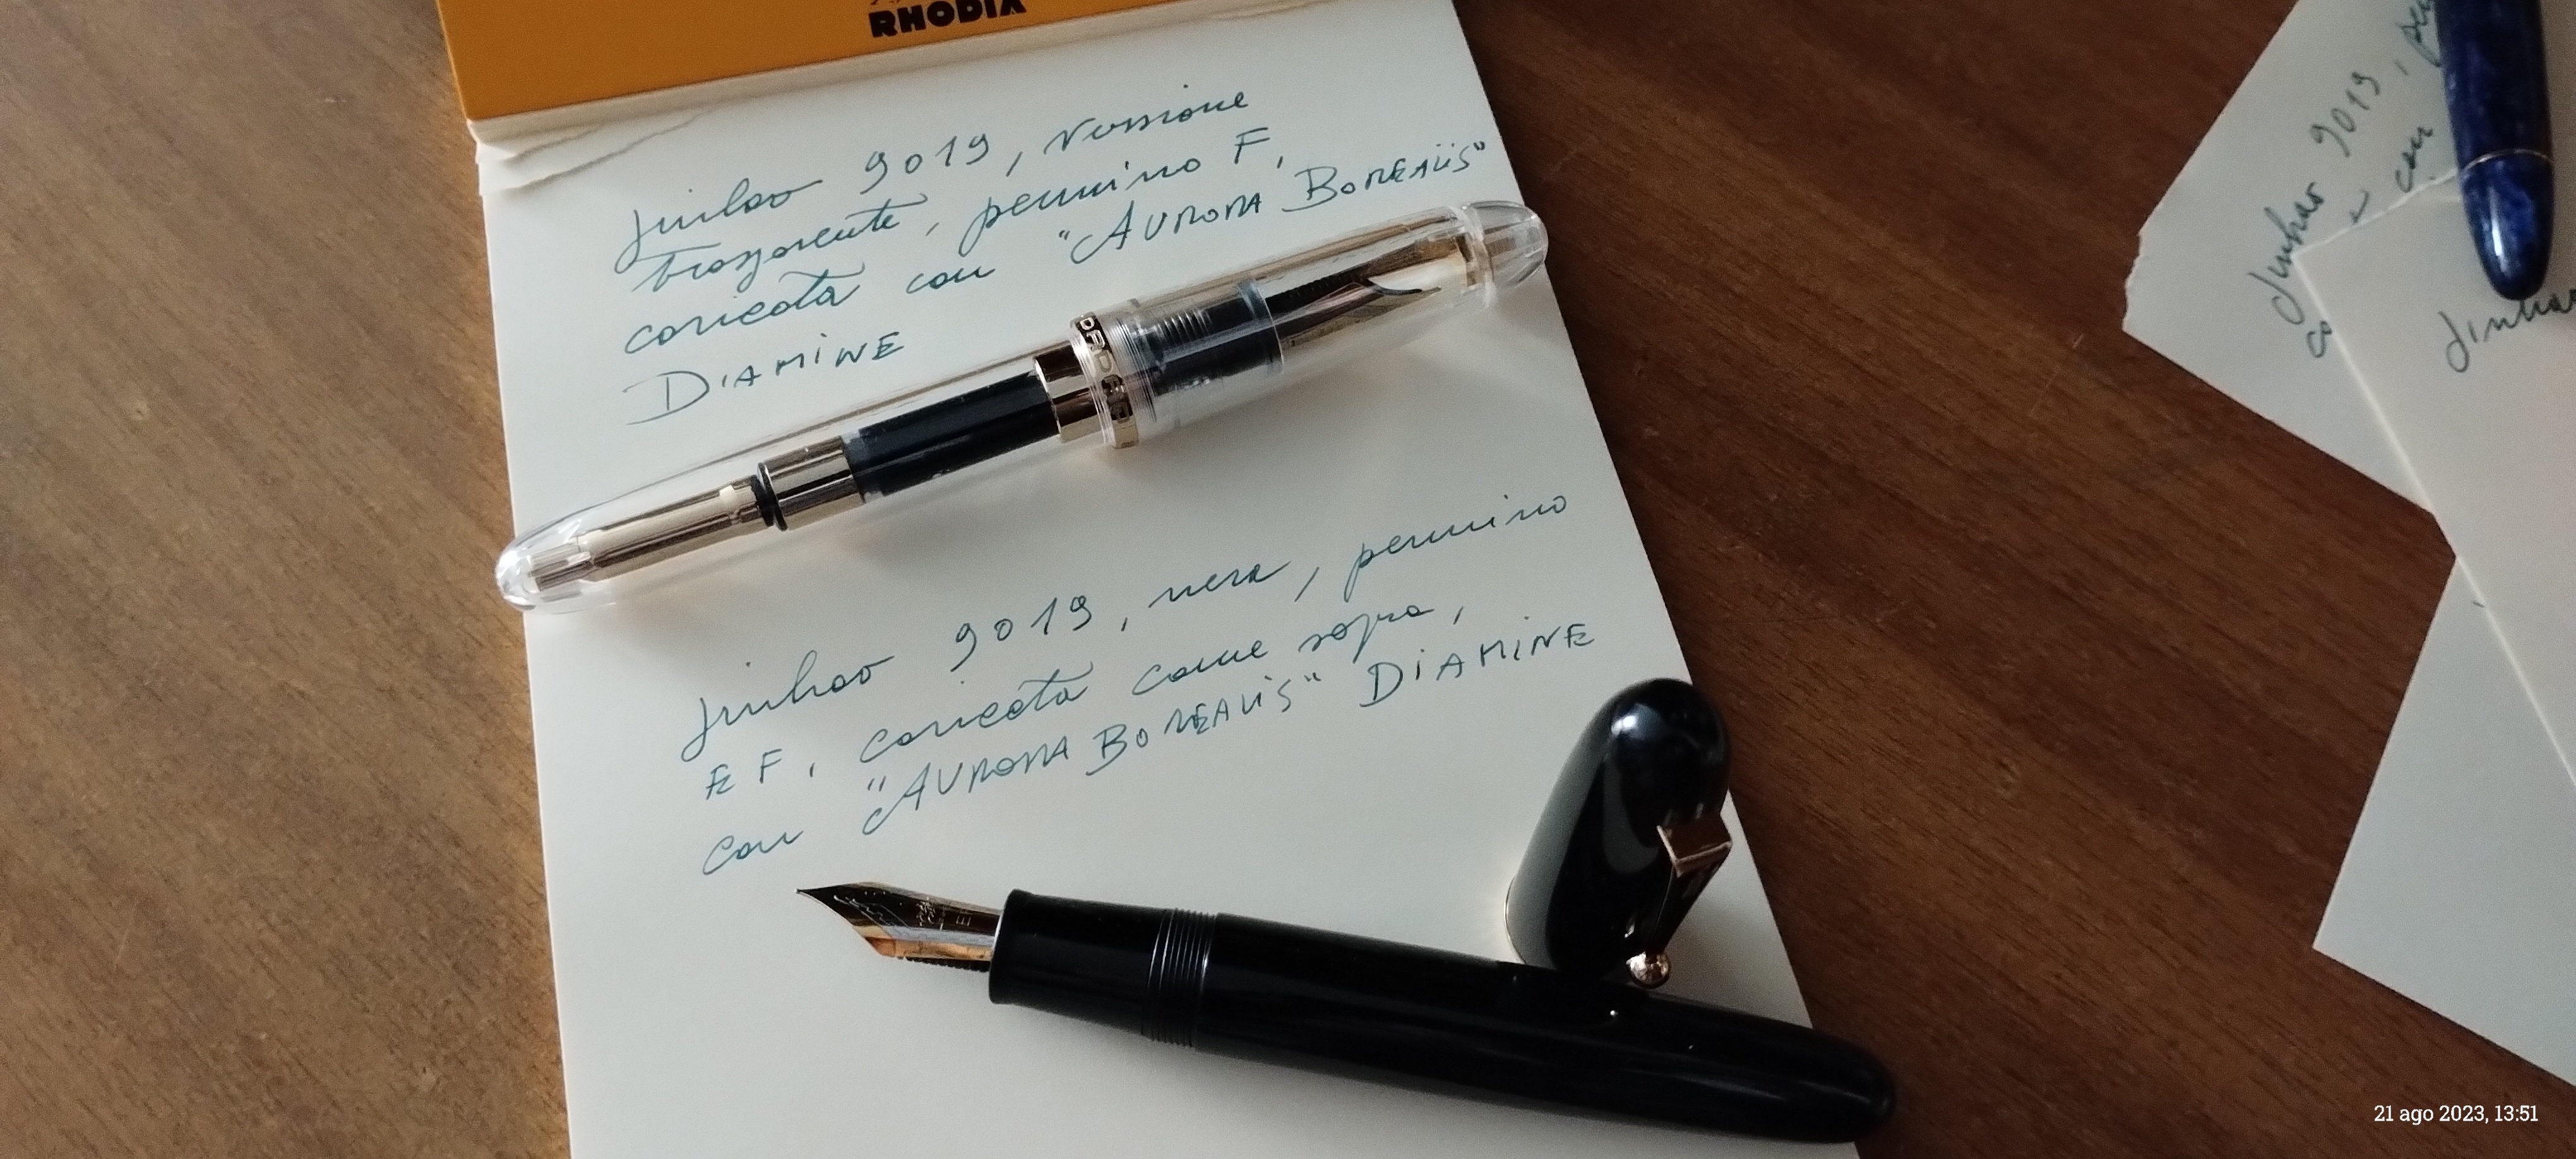 RHODIA
Jinhao 9019, versione
trasparente, pennino F,
caricata con "AURORA BOREALIS"
DIAMINE
Jinhao 9019, nera, pennino
EF, caricata come sopra,
con "AURORA BOREALIS" DIAMINE
Jinhao 9019,
con
Jinhao
21 ago 2023, 13:51